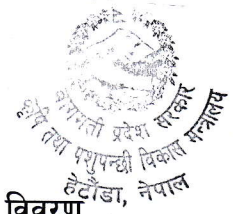 बागमती प्रदेश सरकार
कृषि तथा पशुपन्छी विकास मन्त्रालय
हेटौंडा, नेपाल
विवरण